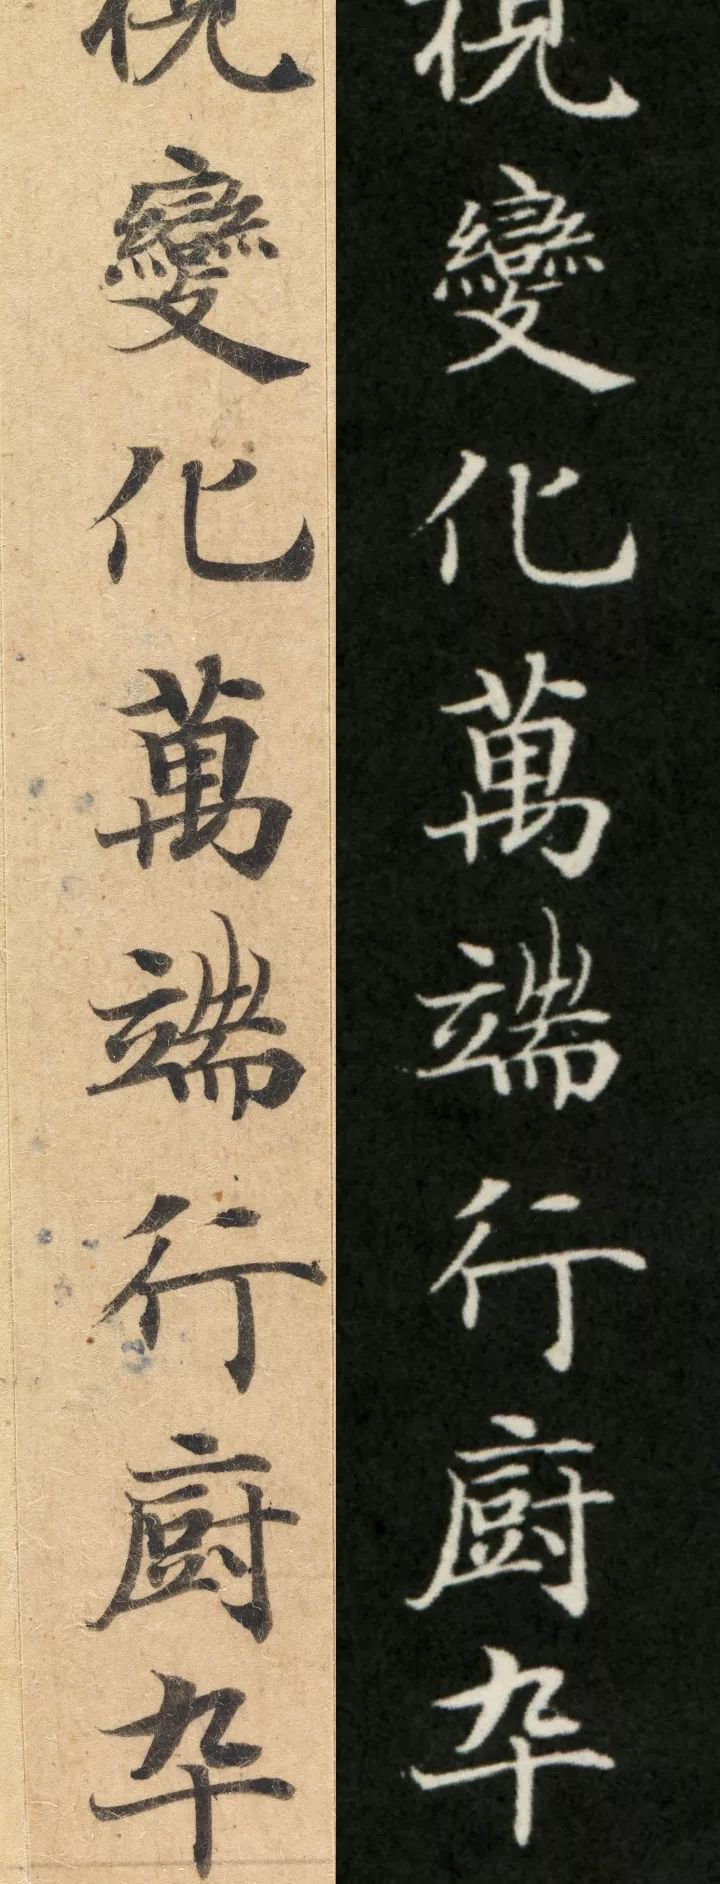 視變化萬端行廚卒
視變化萬端行廚卒